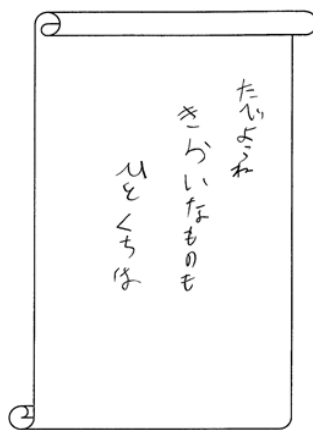 たべようね
きらいなものも
ひとくちは